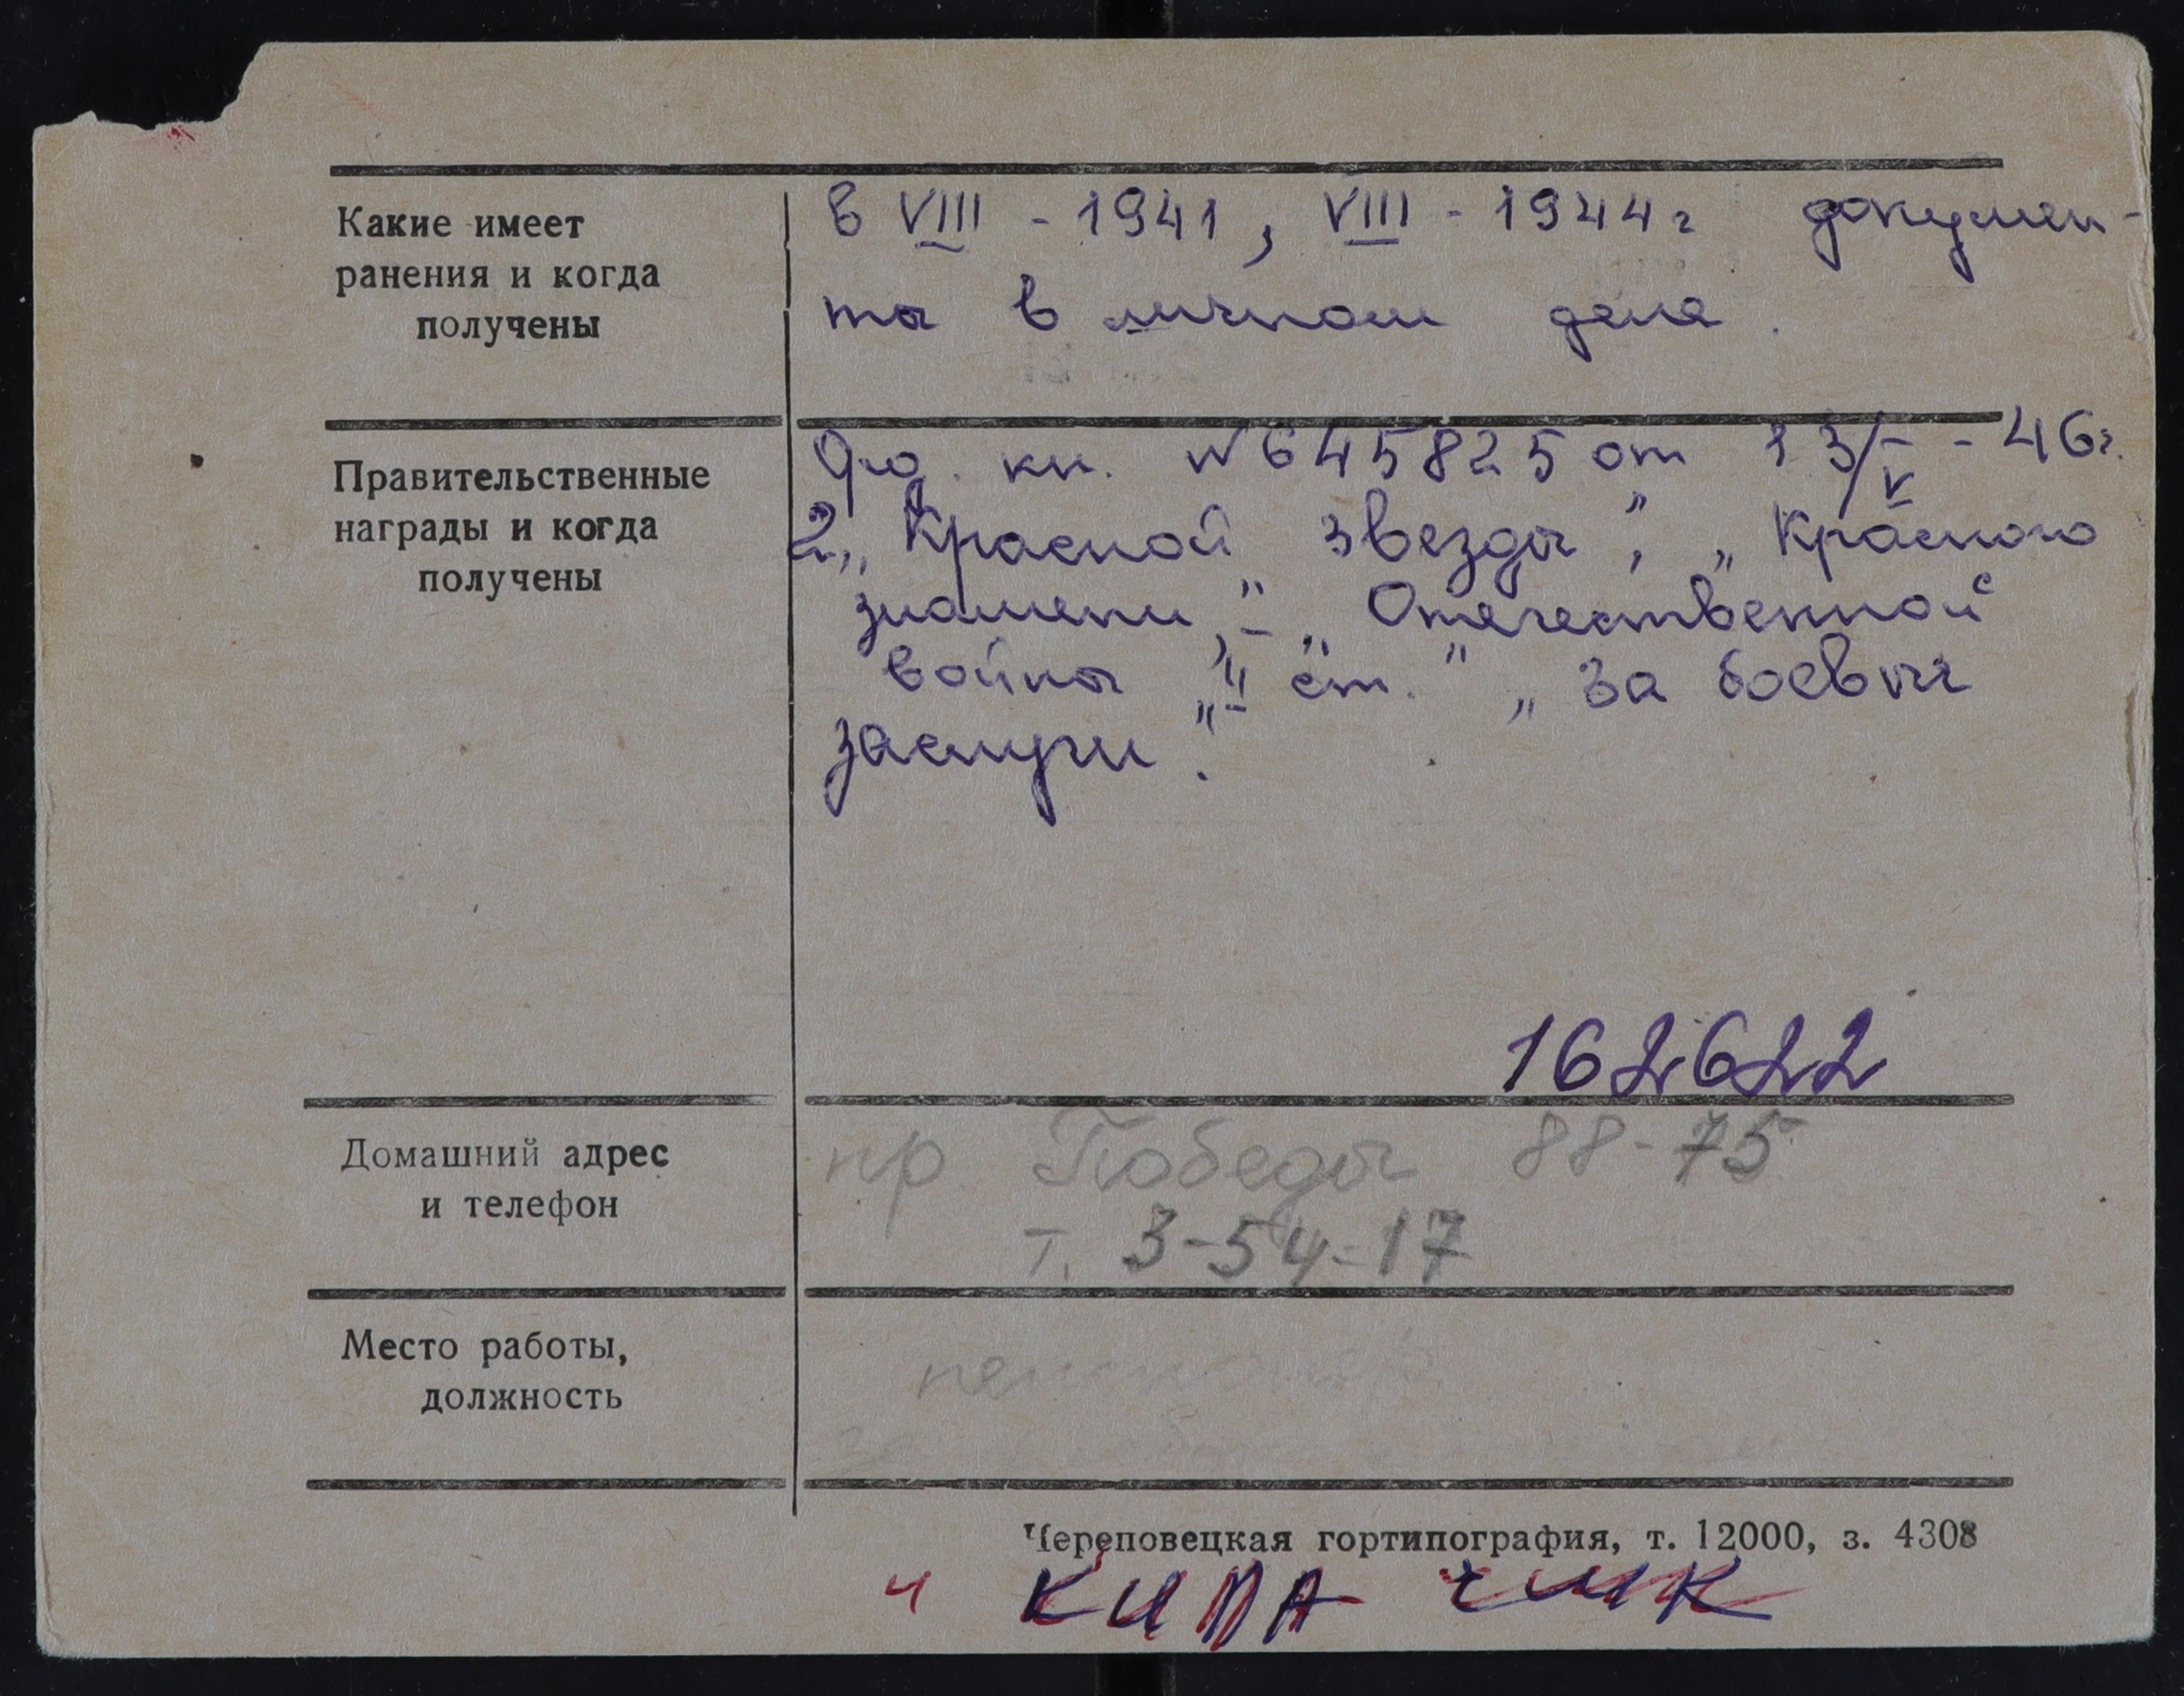 Какие имеет
ранения и когда
получены
в VIII - 1941, VIII - 1944г докумен-
ты в личном деле.
Правительственные
награды и когда
получены
Уд. кн. N645825 от 13/V - 46г.
2 „Красной звезды", „Красного
знамени", „Отечественной
войны „II ст." „За боевые
заслуги".
162622
Домашний адрес
и телефон
пр. Победы 88-75
т. 3-54-17
Место работы,
должность
пенсионер
Череповецкая гортипография, т. 12000, з. 4308
ч КИПА ЧМК